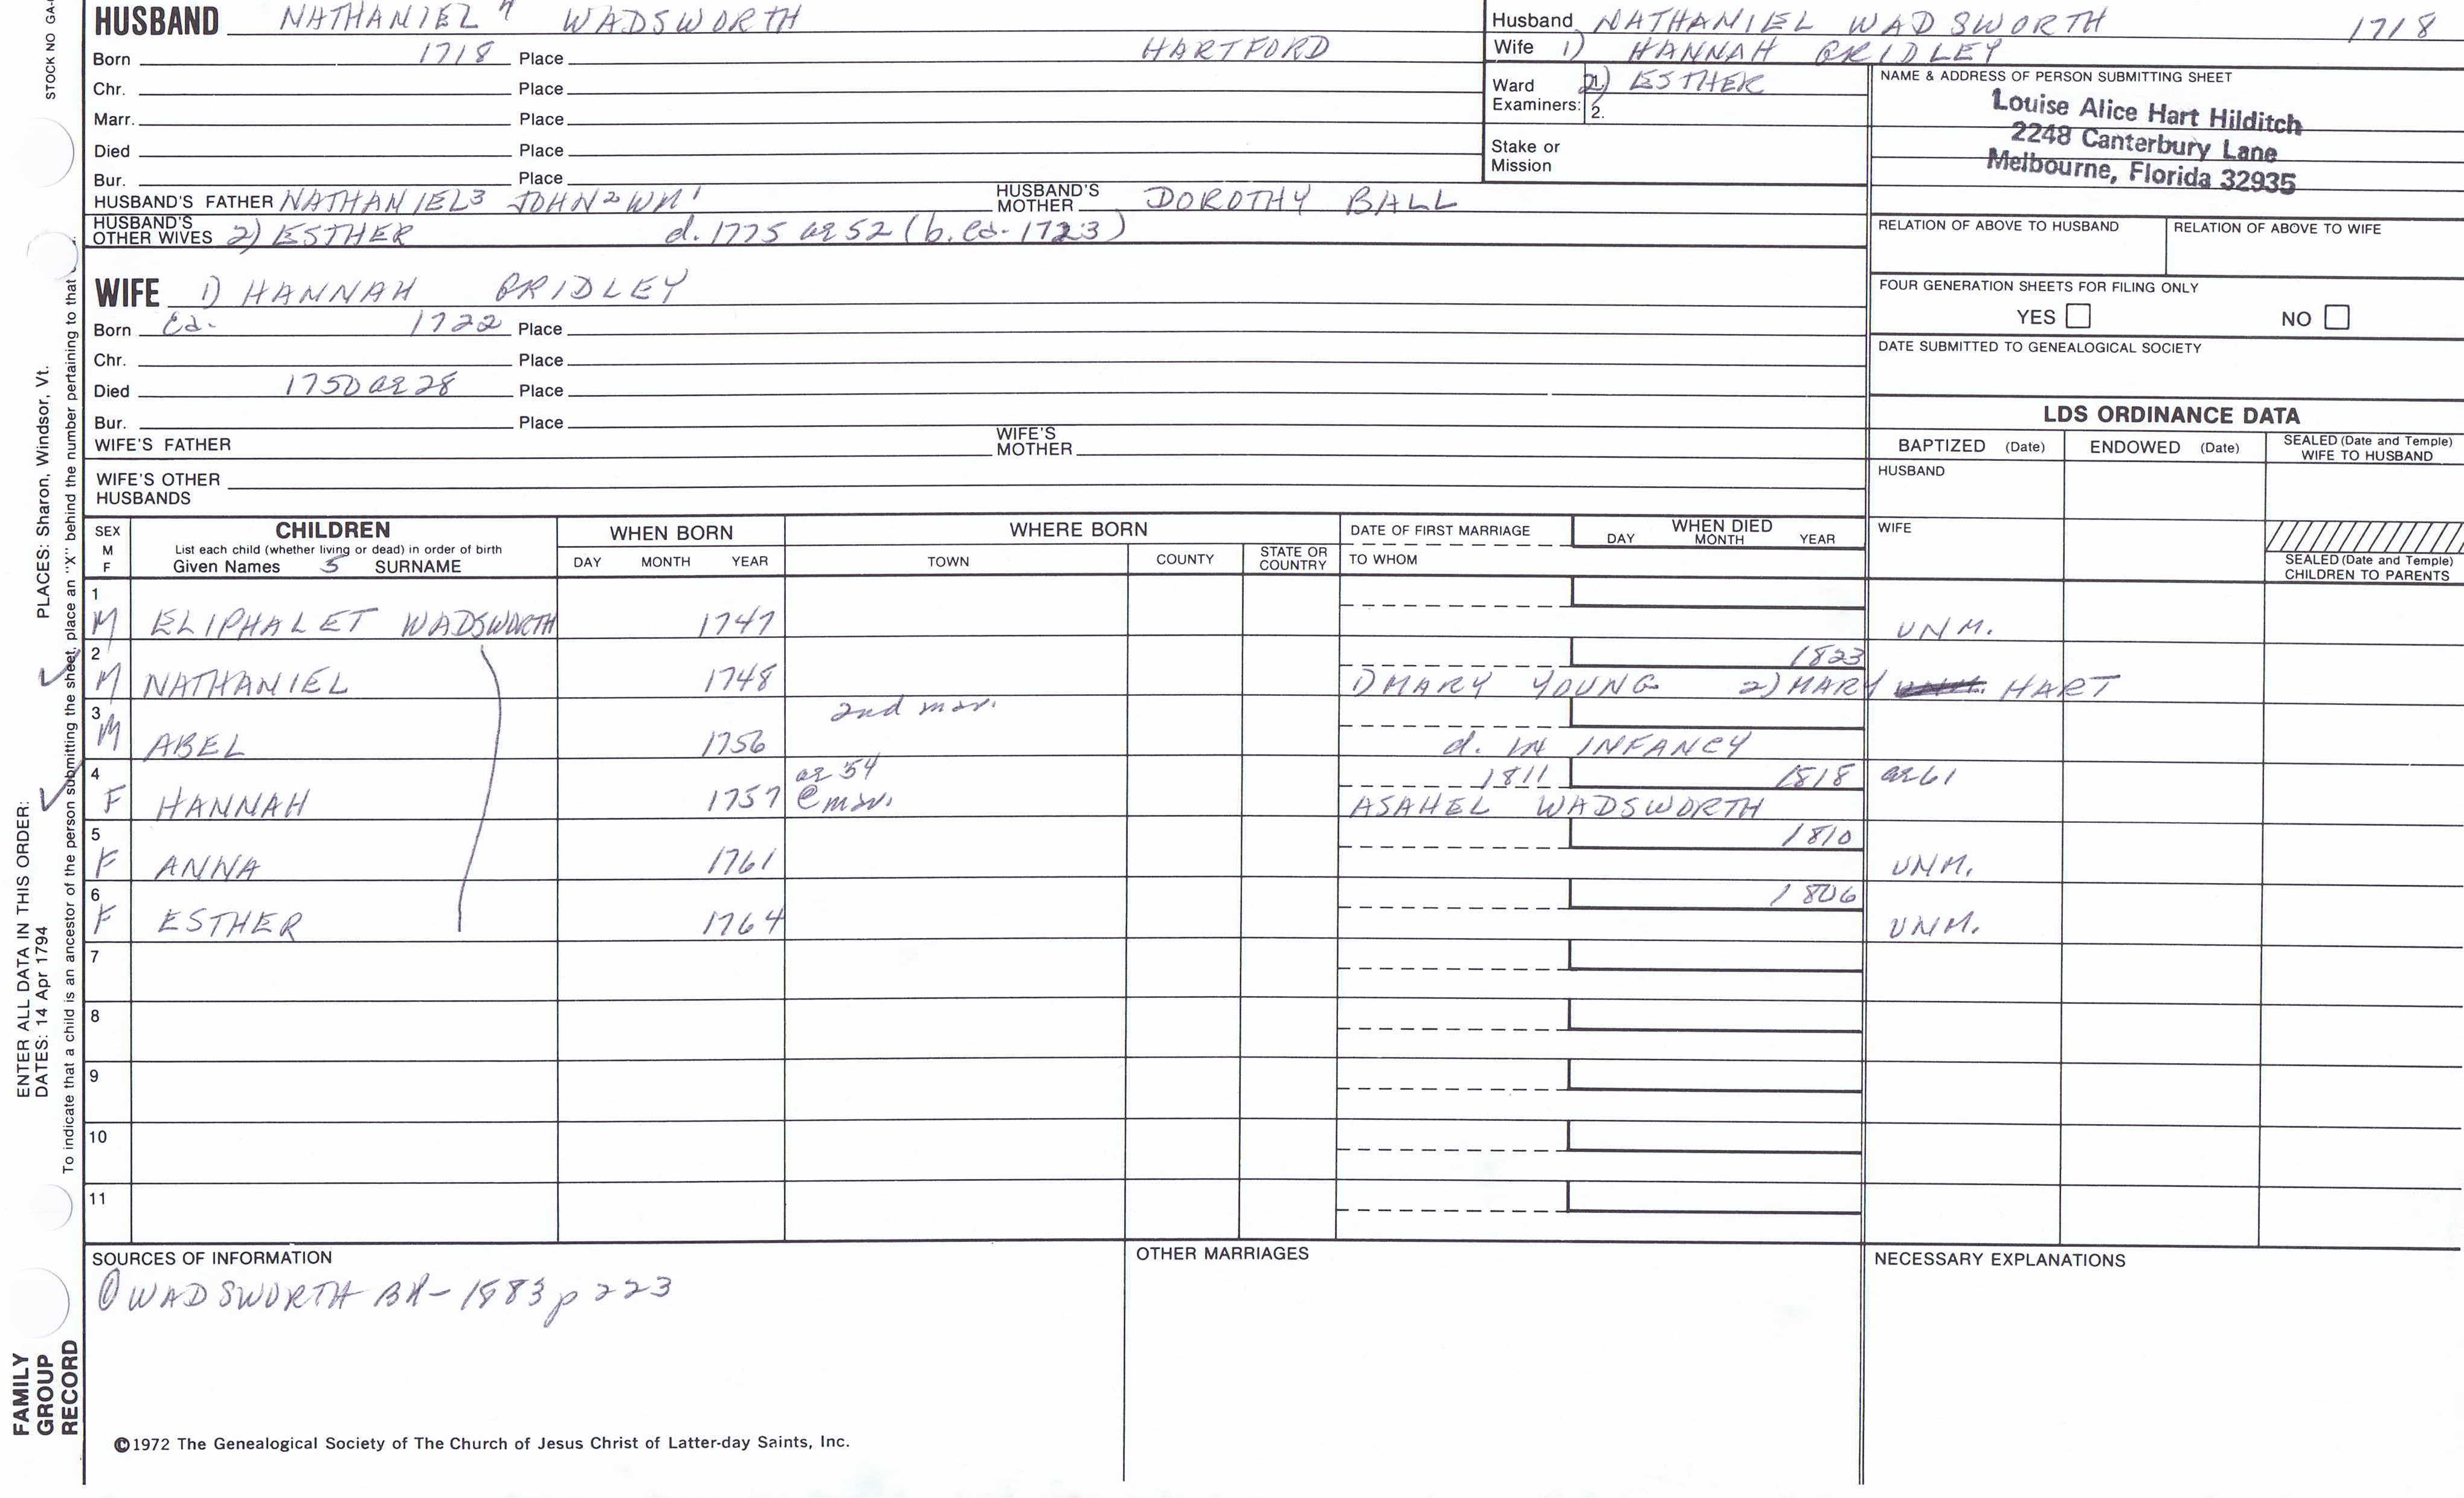 STOCK NO GA-
HUSBAND NATHANIEL 4 WADSWORTH
Born 1718 Place HARTFORD
Chr. Place
Marr. Place
Died Place
Bur. Place
HUSBAND'S FATHER NATHANIEL3 JOHN2 WM1 HUSBAND'S MOTHER DOROTHY BALL
HUSBAND'S OTHER WIVES 2) ESTHER d. 1775 ae 52 (b. ca. 1723)
WIFE 1) HANNAH GRIDLEY
Born Ca. 1722 Place
Chr. Place
Died 1750 ae 28 Place
Bur. Place
WIFE'S FATHER WIFE'S MOTHER
WIFE'S OTHER HUSBANDS
Husband NATHANIEL WADSWORTH 1718
Wife 1) HANNAH GRIDLEY
Ward Examiners: 1. 2) ESTHER
2.
Stake or Mission
NAME & ADDRESS OF PERSON SUBMITTING SHEET
Louise Alice Hart Hilditch
2248 Canterbury Lane
Melbourne, Florida 32935
RELATION OF ABOVE TO HUSBAND RELATION OF ABOVE TO WIFE
FOUR GENERATION SHEETS FOR FILING ONLY
YES NO
DATE SUBMITTED TO GENEALOGICAL SOCIETY
LDS ORDINANCE DATA
BAPTIZED (Date) ENDOWED (Date) SEALED (Date and Temple) WIFE TO HUSBAND
HUSBAND
WIFE
SEALED (Date and Temple) CHILDREN TO PARENTS
SEX M F
CHILDREN
List each child (whether living or dead) in order of birth
Given Names 5 SURNAME
WHEN BORN
DAY MONTH YEAR
WHERE BORN
TOWN COUNTY STATE OR COUNTRY
DATE OF FIRST MARRIAGE
TO WHOM
WHEN DIED
DAY MONTH YEAR
1
M ELIPHALET WADSWORTH 1747 UNM.
2 1823
M NATHANIEL 1748 1) MARY YOUNG 2) MARY HART
3 2nd mar.
M ABEL 1756 d. IN INFANCY
4 ae 54 1811 1818 ae 61
F HANNAH 1757 @ mar. ASAHEL WADSWORTH
5 1810
F ANNA 1761 UNM.
6 1806
F ESTHER 1764 UNM.
7
8
9
10
11
SOURCES OF INFORMATION
① WADSWORTH BK - 1883 p 223
OTHER MARRIAGES
NECESSARY EXPLANATIONS
©1972 The Genealogical Society of The Church of Jesus Christ of Latter-day Saints, Inc.
ENTER ALL DATA IN THIS ORDER:
DATES: 14 Apr 1794 PLACES: Sharon, Windsor, Vt.
To indicate that a child is an ancestor of the person submitting the sheet, place an "X" behind the number pertaining to that
FAMILY
GROUP
RECORD